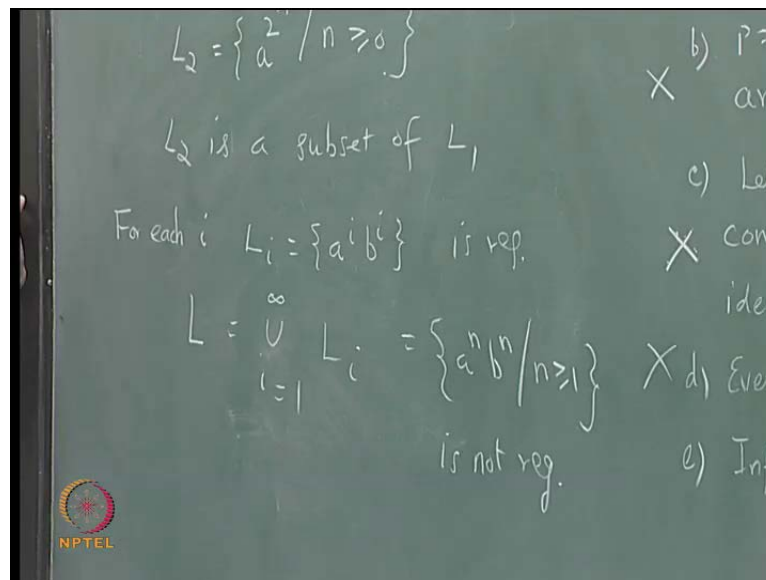 L₂ = { a^2^n / n ≥ 0 }
L₂ is a subset of L₁
For each i L_i = { a^i b^i } is reg.
L = ∞ ∪ i=1 L_i = { a^n b^n / n ≥ 1 }
is not reg.
b) P =
X
c) Le
X con
ide
X d) Eve
e) In
NPTEL